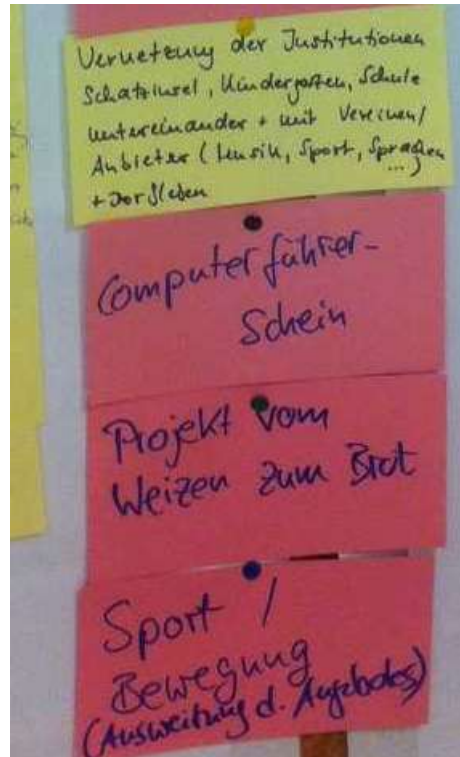 Vernetzung der Institutionen
Schatzinsel, Kindergarten, Schule
untereinander + mit Vereinen/
Anbieter (Musik, Sport, Sprachen
...)
+ Dorfleben
Computerführer-
Schein
Projekt vom
Weizen zum Brot
Sport /
Bewegung
(Ausweitung d. Angebotes)